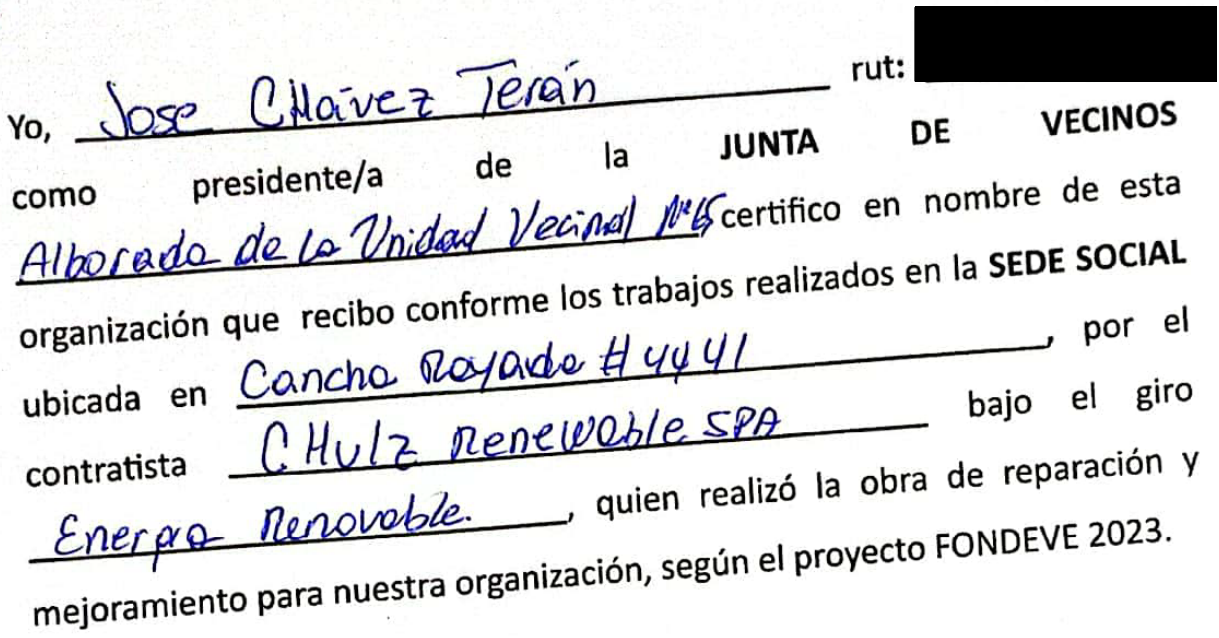 Yo, Jose CHávez Terán rut:
como presidente/a de la JUNTA DE VECINOS
Alborada de la Unidad Vecinal certifico en nombre de esta
organización que recibo conforme los trabajos realizados en la SEDE SOCIAL
ubicada en Cancha Rayada #4441, por el
contratista CHulz Renewable SPA bajo el giro
Energia Renovable., quien realizó la obra de reparación y
mejoramiento para nuestra organización, según el proyecto FONDEVE 2023.